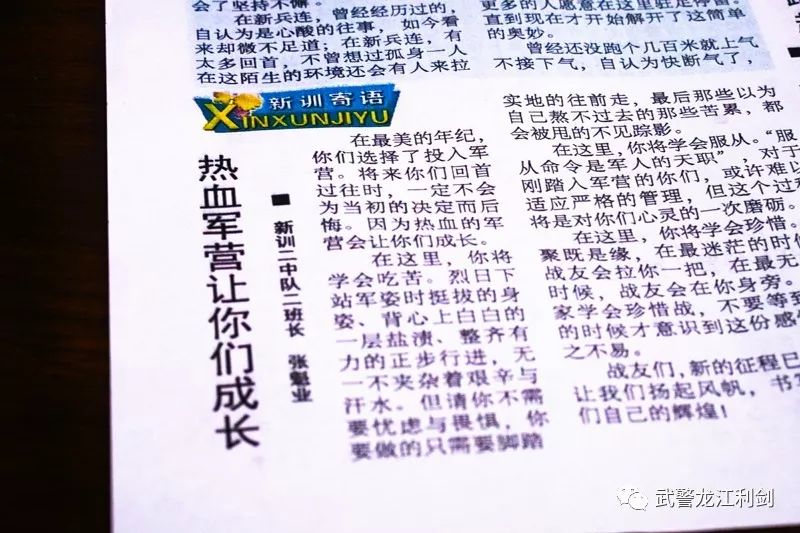 会了坚持不懈。
在新兵连，曾经经历过的，
自认为是心酸的往事，如今看
来却微不足道；在新兵连，有
太多回首，不曾想过孤身一人
在这陌生的环境还会有人来拉
更多的人愿意在这里驻足停留。
直到现在才开始解开了这简单
的奥妙。
曾经还没跑个几百米就上气
不接下气，自认为快断气了，
新训寄语
XINXUNJIYU
热血军营让你们成长
■ 新训二中队二班长 张魁业
在最美的年纪，
你们选择了投入军
营。将来你们回首
过往时，一定不会
为当初的决定而后
悔。因为热血的军
营会让你们成长。
在这里，你将
学会吃苦。烈日下
站军姿时挺拔的身
姿、背心上白白的
一层盐渍、整齐有
力的正步行进，无
一不夹杂着艰辛与
汗水。但请你不需
要忧虑与畏惧，你
要做的只需要脚踏
实地的往前走，最后那些以为
自己熬不过去的那些苦累，都
会被甩的不见踪影。
在这里，你将学会服从。“服
从命令是军人的天职”，对于
刚踏入军营的你们，或许难以
适应严格的管理，但这个过
将是对你们心灵的一次磨砺。
在这里，你将学会珍惜。
聚既是缘，在最迷茫的时
战友会拉你一把，在最无
时候，战友会在你身旁。
家学会珍惜战，不要等到
的时候才意识到这份感
之不易。
战友们，新的征程已
让我们扬起风帆，书
们自己的辉煌！
武警龙江利剑